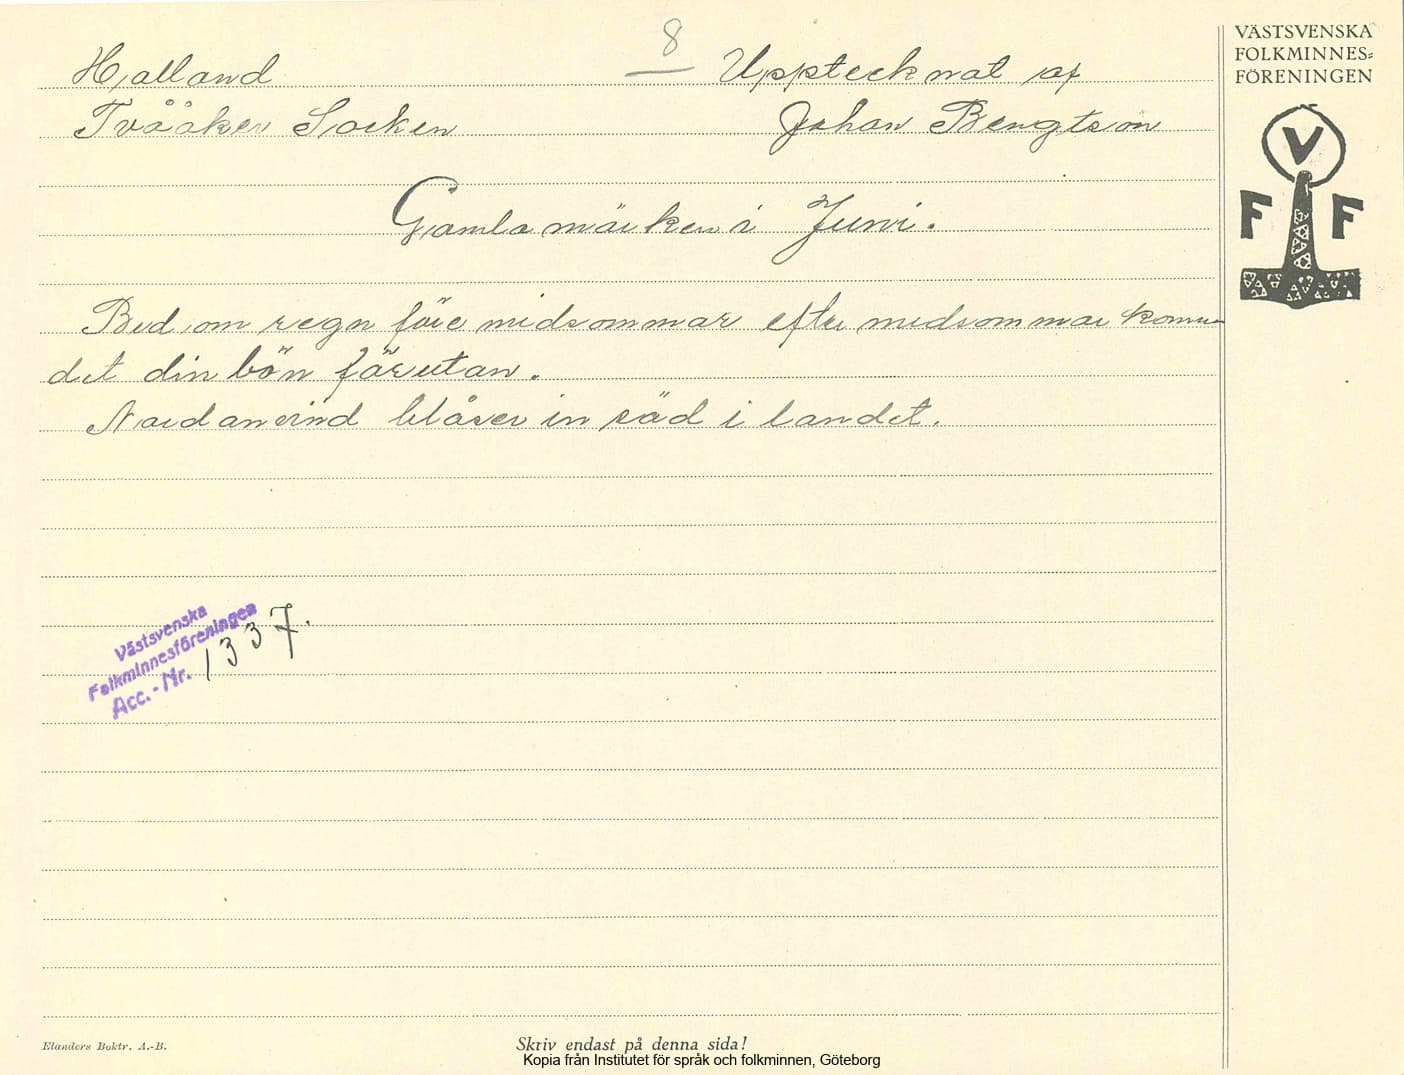 8
Halland
Upptecknat af
Tvååker Socken
Johan Bengtson
Gamla märken i Juni.
Bed om regn före midsommar efter midsommar kommer
det din bön förutan.
Nordanvind blåser in säd i landet.
Västsvenska
Folkminnesföreningen
Acc.-Nr. 1337.
VÄSTSVENSKA
FOLKMINNES=
FÖRENINGEN
V
F F
Elanders Boktr. A.-B.
Skriv endast på denna sida!
Kopia från Institutet för språk och folkminnen, Göteborg